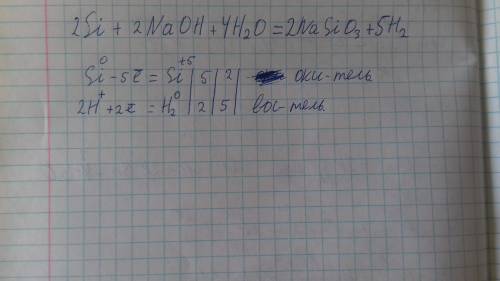 2Si + 2NaOH + 4H₂O = 2NaSiO₃ + 5H₂
Si⁰ - 5ē = Si⁺⁵ | 5 | 2 | оки-тель
2H⁺ + 2ē = H₂⁰ | 2 | 5 | вос-тель